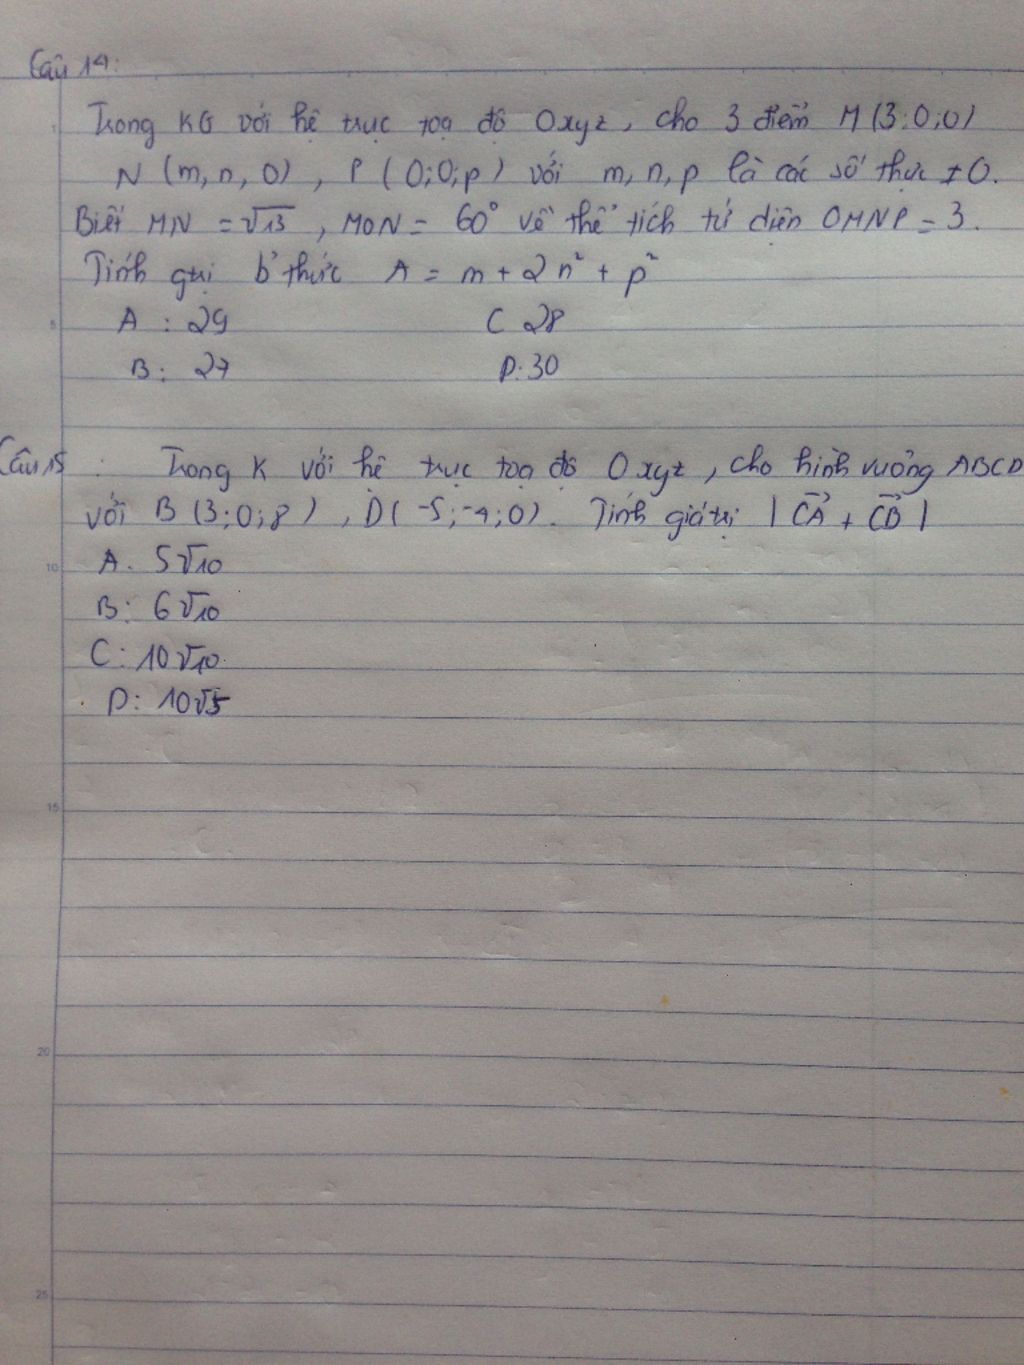 Câu 14:
Trong KG với hệ trục toạ độ Oxyz, cho 3 điểm M(3;0;0)
N (m, n, 0), P (0;0;p) với m, n, p là các số thực ≠ 0.
Biết MN = √13, MON = 60° về thể tích tứ diện OMNP = 3.
Tính gtrị b' thức A = m + 2n² + p²
A : 29 C 28
B: 27 D. 30
Câu 15 : Trong K với hệ trục toạ độ Oxyz, cho hình vuông ABCD
với B (3;0;8), D(-5;-4;0). Tính giá trị |CA + CB|
A. 5√10
B: 6√10
C: 10√10.
D: 10√5
1
5
10
15
20
25